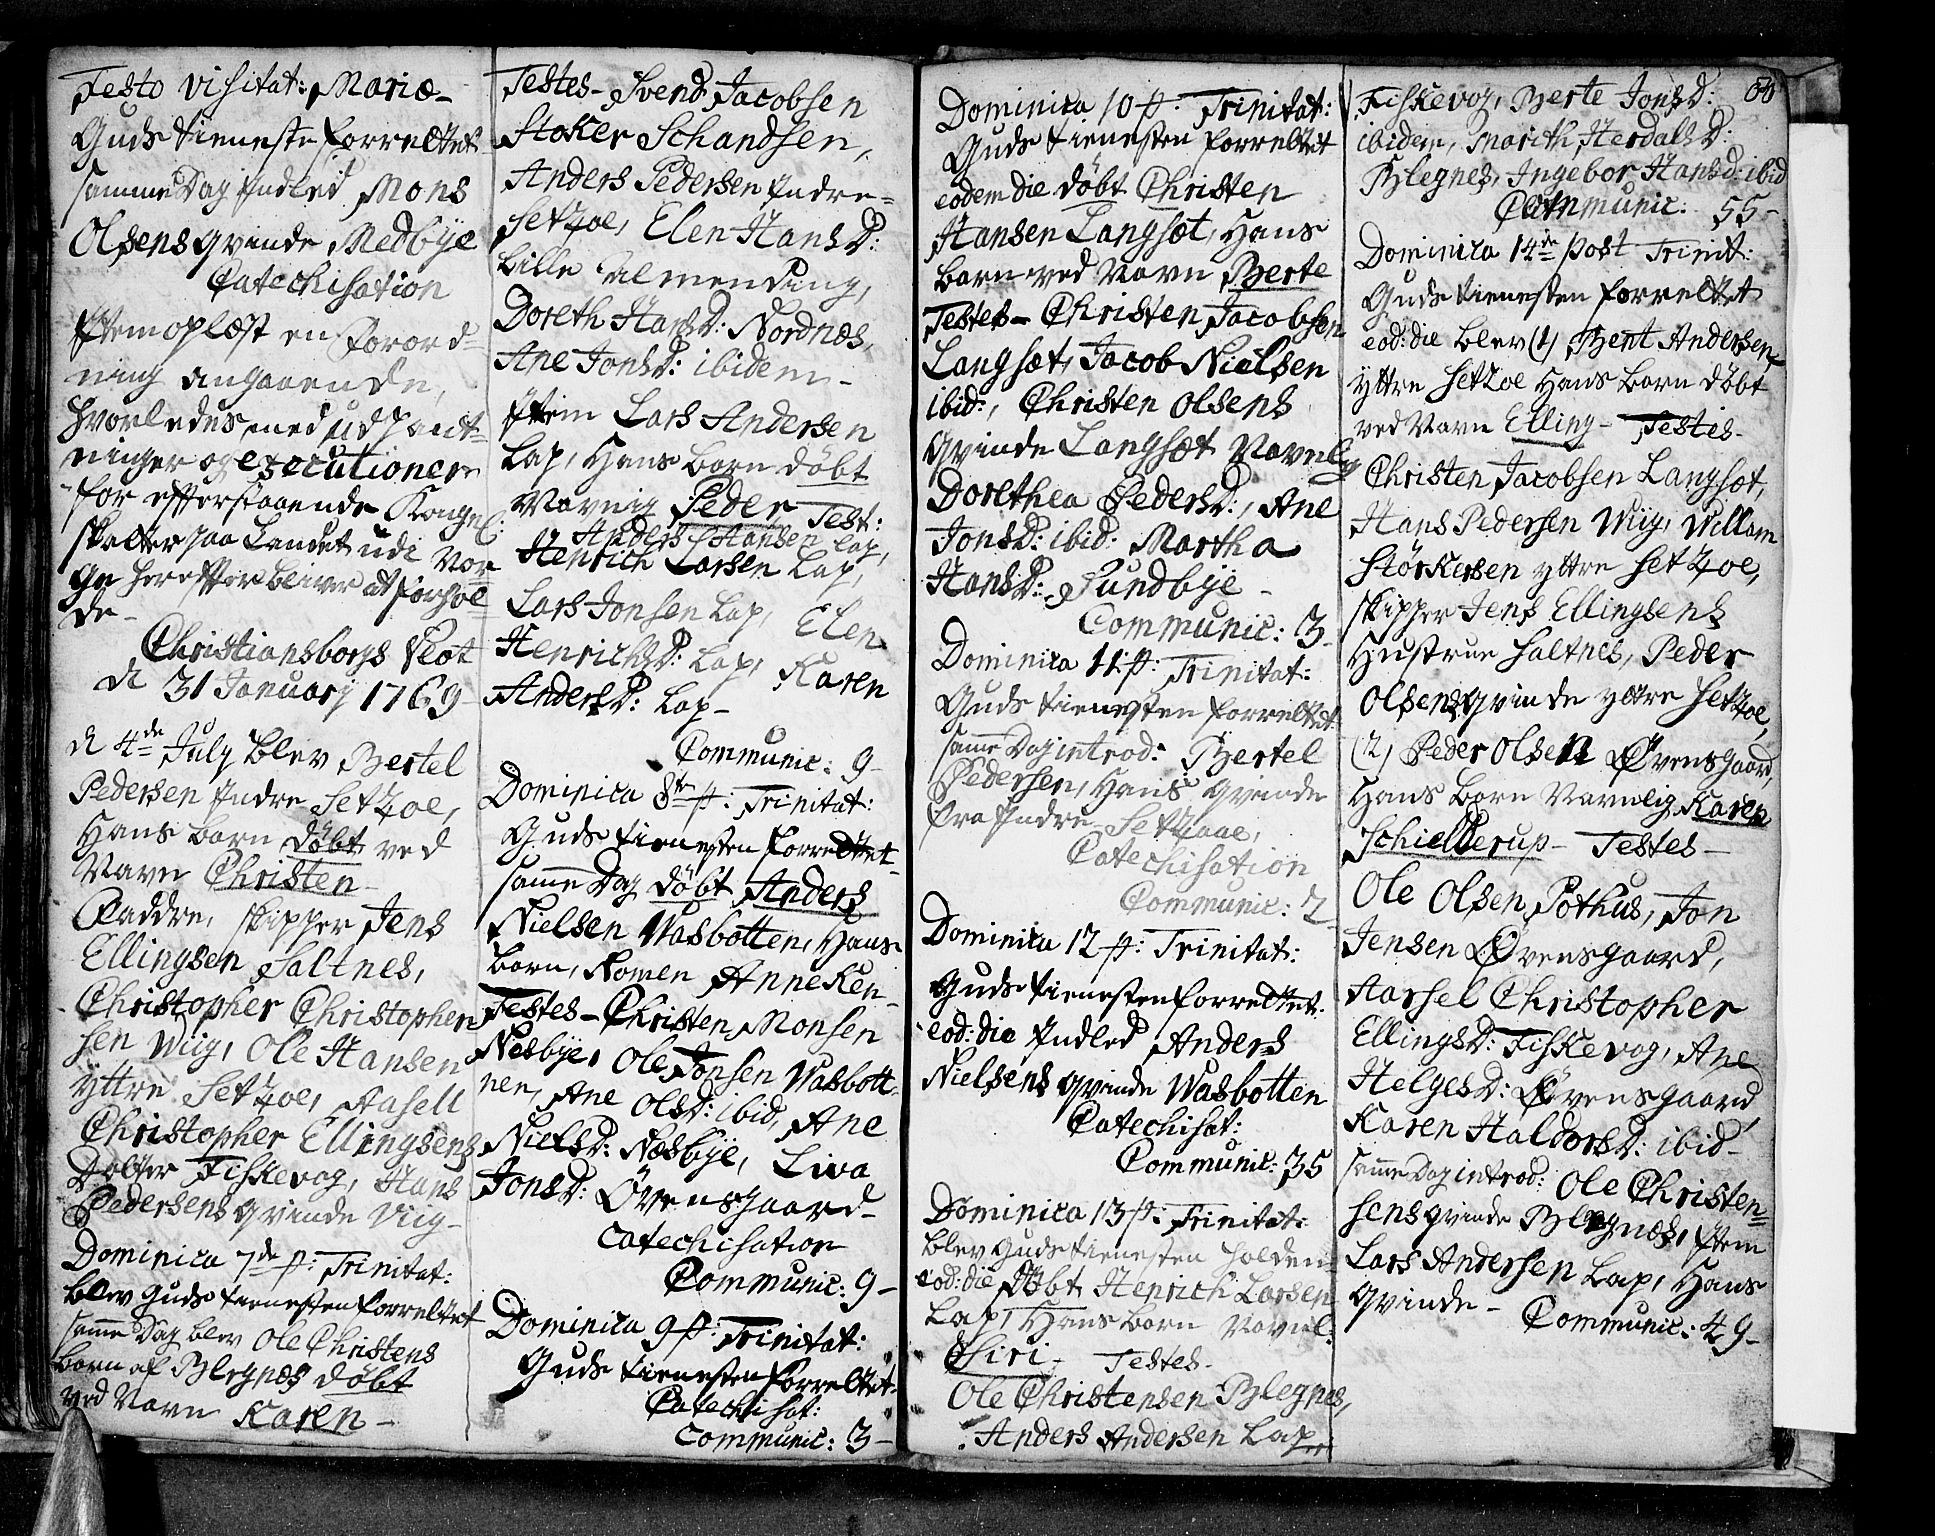 Festo Visitat: Mariæ-
Guds tieneste forrettet
samme Dag Indled Mons
Olsens qvinde Medbÿe
Catechisation
Item oplæst en Forord-
ning angaaende,
hvorledes med udpant-
ninger og executioner
for efterstaaende Kongel:
skatter paa Landet udi Nor
ge herefter bliver at forhol
de-
Christiansborgs Slot
d 31 Januarj 1769-
d 4de July blev Bertel
Pedersen Indre Setzoe,
Hans barn döbt ved
Navn Christen-
Faddre, skipper Jens
Ellingsen Saltnes,
Christopher Christopher
sen Wiig, Ole Hansen
yttre Setzoe, Aasell
Christopher Ellingsens
Dotter Fiskevog, Hans
Pedersens qvinde Viig-
Dominica 7de p: Trinitat:
blev Guds tienesten forrettet
samme Dag blev Ole Christens
barn af Blegnæs döbt
ved Navn Karen-
Testes- Svend Jacobsen
Stoker Schandsen,
Anders Pedersen Indre-
Setzoe, Elen Hans D:
Lille Almending,
Doreth Hans D: Nordnæs,
Ane Jons D: ibidem-
Item Lars Andersen
Lap, Hans barn döbt
Navnlig Peder Test:
Anders Hansen Lap,
Henrich Larsen Lap,
Lars Jonsen Lap, Elen
Henrichs D: Lap, Karen
Anders D: Lap-
Communic: 9-
Dominica 8tr p: Trinitat:
Guds tienesten forrettet
samme Dag döbt Anders
Nielsen Wasbotten, Hans
barn, Nomen Anne Ken-
Testes- Christen Monsen
Nesbÿe, Ole Jonsen Wasbott-
nen, Ane Ols D: ibid, Ane
Niels D: Næsbÿe, Liva
Jons D: Øvensgaard-
Catechisation
Communic: 9-
Dominica 9 p: Trinitat:
Guds tienesten forrettet:
Catechisat:
Communic: 3-
Dominica 10 p: Trinitat:
Guds tienesten forrettet
eodem die döbt Christen
Hansen Langsæt, Hans
barn ved Navn Berte
Testes- Christen Jacobsen
Langsæt, Jacob Nielsen
ibid:, Christen Olsens
qvinde Langsæt Navnlig
Dorethea Peders D:, Ane
Jons D: ibid: Martha
Hans D: Sundbÿe-
Communic: 3-
Dominica 11 p: Trinitat:
Guds tienesten forrettet
samme Dag introd: Bertel
Pedersen, Hans qvinde
fra Indre Setzoe,
Catechisation
Communic: 2
Dominica 12 p: Trinitat:
Guds tienesten forrettet
eod: die Indled Anders
Nielsens qvinde Wasbotten
Catechisat:
Communic: 35
Dominica 13 p: Trinitat:
blev Guds tienesten holden
eod: die döbt Henrich Larsen
Lap, Hans barn Navnl:
Siri- Testes-
Ole Christensen Blegnes,
Anders Andersen Lap
Fiskevog, Berte Jons D:
ibidem, Marith Herdals D:
Blegnes, Ingebor Hans D: ibid
Communic: 55-
Dominica 14de post Trinit:
Guds tienesten forrettet
eod: die blev (1) Bent Andersen
yttre Setzoe Hans barn döbt
ved Navn Elling- Testes-
Christen Jacobsen Langsæt,
Hans Pedersen Wiig, Willam
Störkersen yttre Setzoe,
skipper Jens Ellingsens
Hustrue Saltnes, Peder
Olsens qvinde yttre Setzoe,
(2) Peder Olsen Øvensgaard,
Hans barn Navnlig Karen
Schielderup- Testes-
Ole Olsen Pothus, Jon
Jensen Øvensgaard,
Aarsel Christopher
Ellings D: Fiskevog, Ane
Helges D: Øvensgaard,
Karen Haldors D: ibid-
samme Dag introd: Ole Christen-
sens qvinde Blegnæs, Item
Lars Andersen Lap, Hans
qvinde-
Communic: 49-